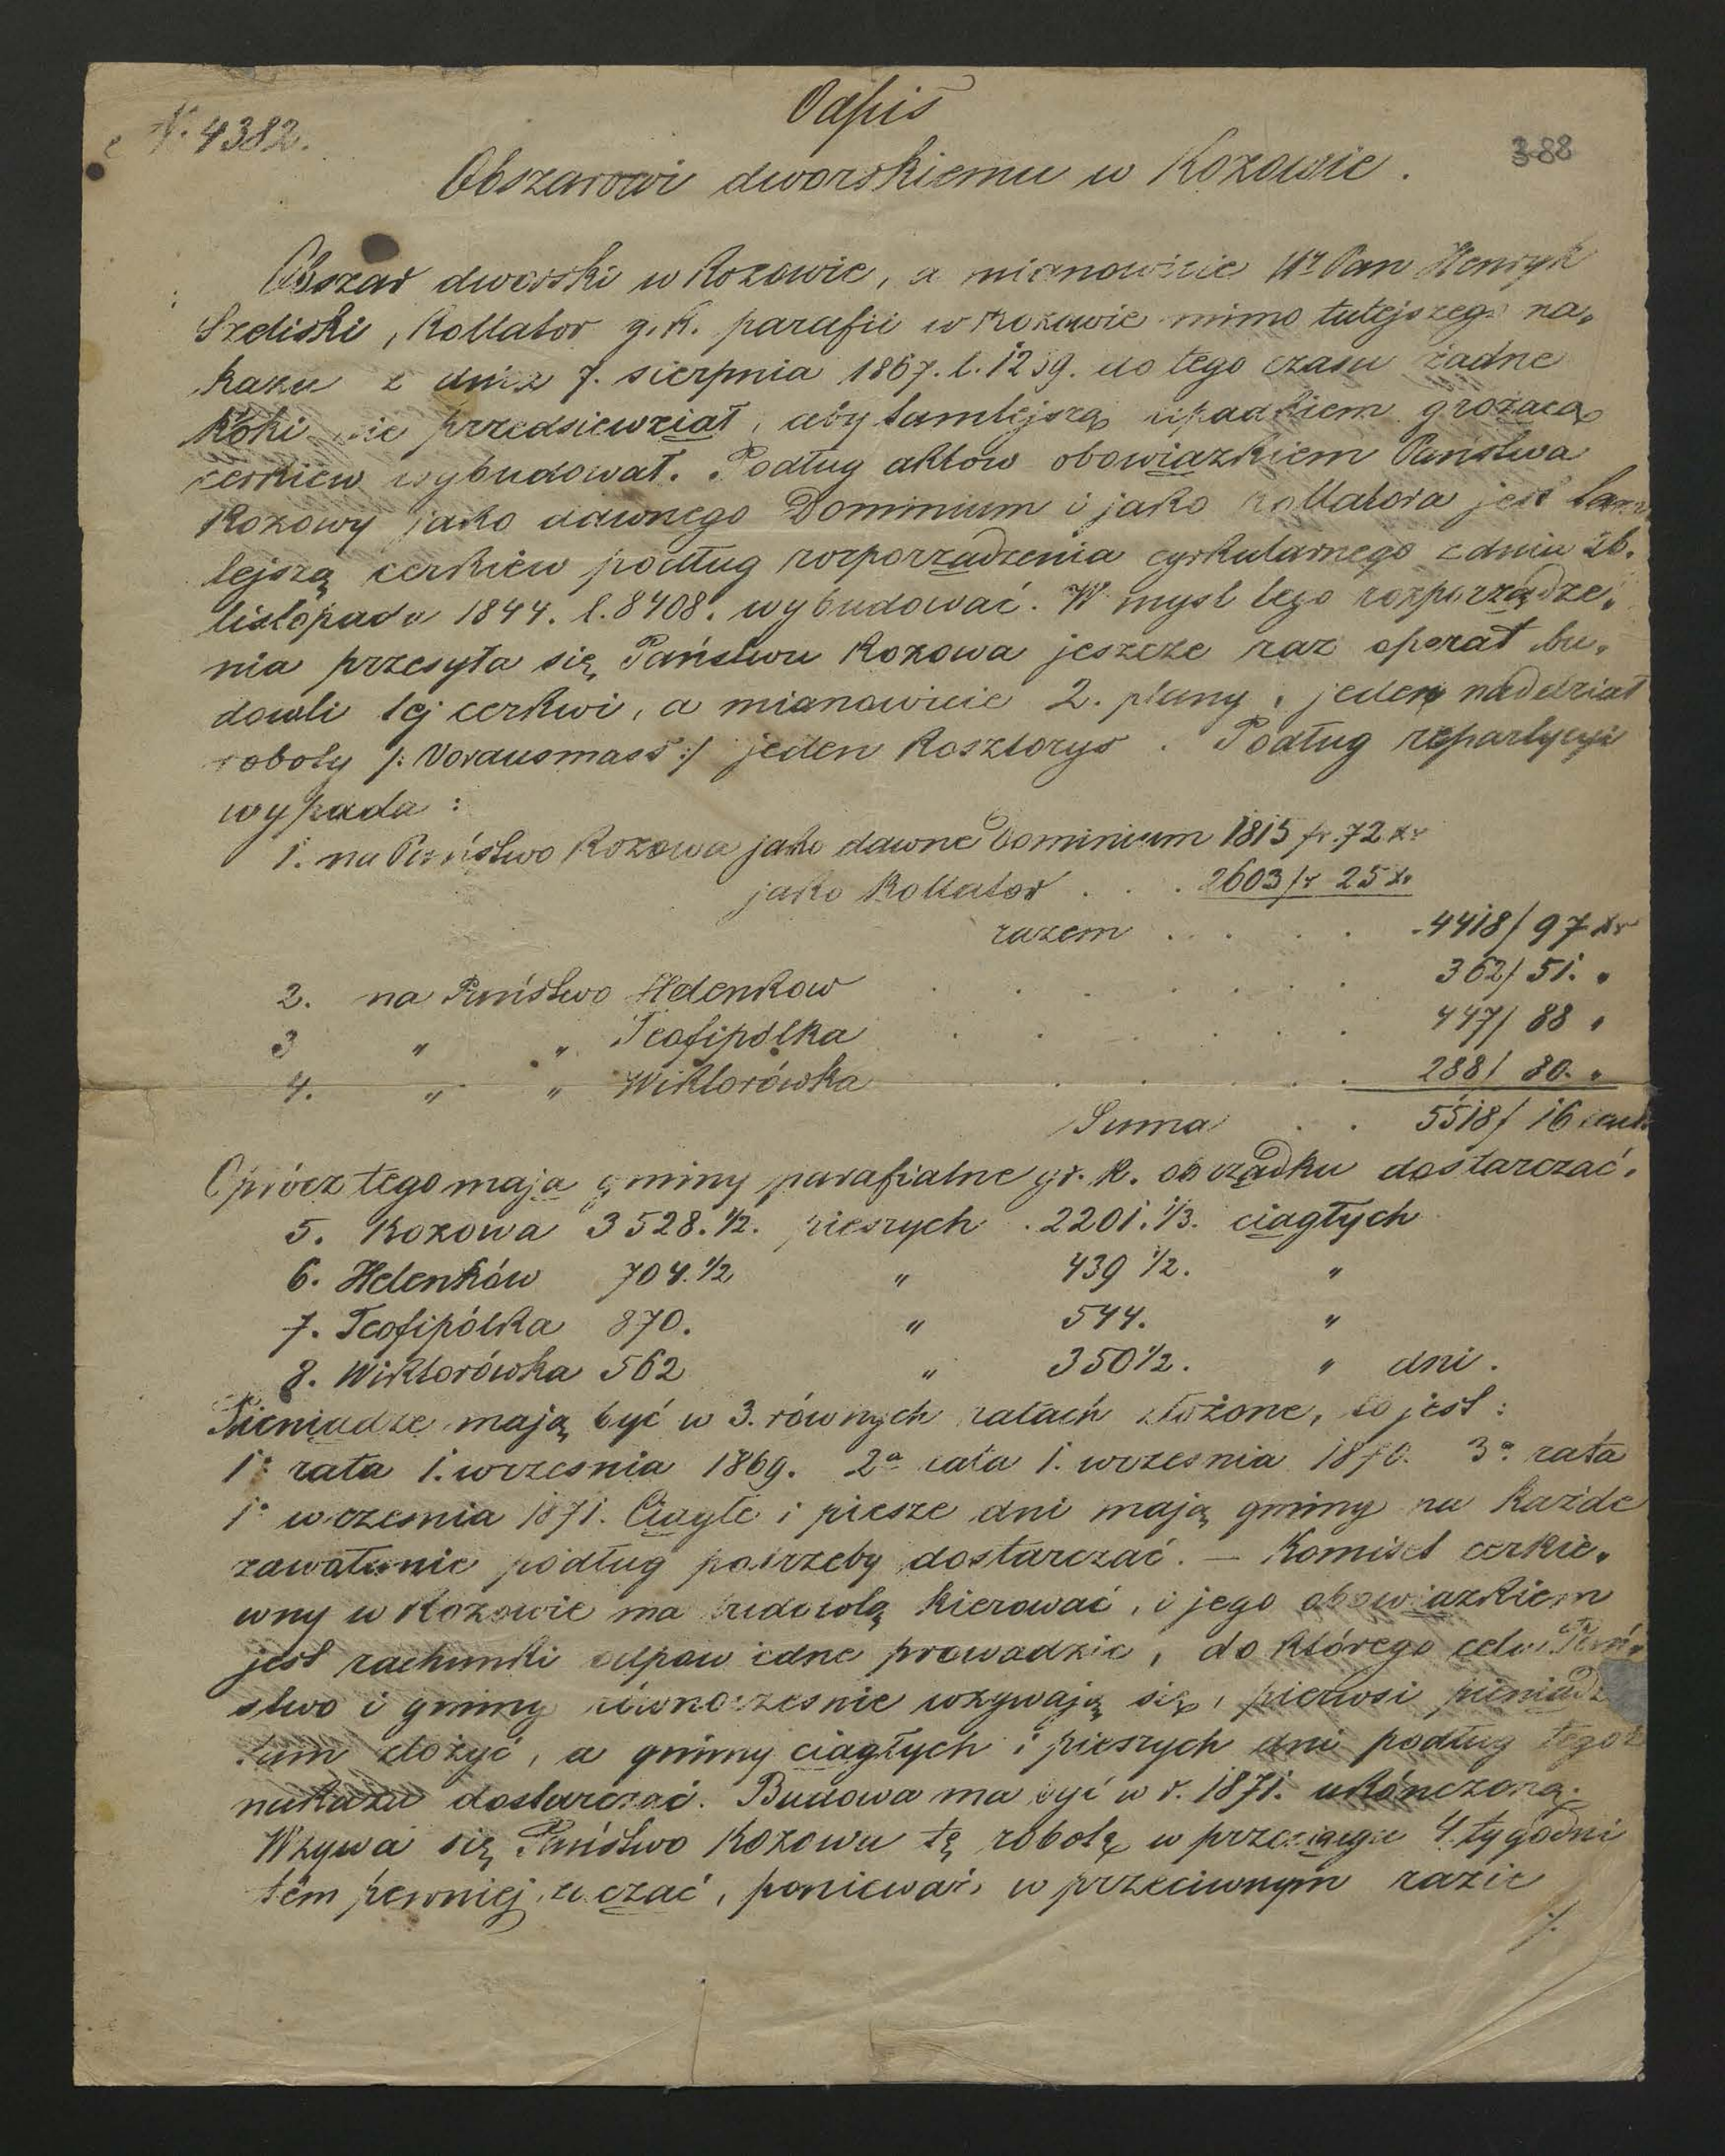 N. 4382.
Odpis
388
Obszarowi dworskiemu w Kozowie.
Obszar dworski w Kozowie, a mianowicie Wr Pan Henryk
Szeliski, Kollator g. k. parafii w Kozowie mimo tutejszego na„
kazu z dnia 7. sierpnia 1867. l. 1239. do tego czasu żadne
Kroki nie przedsiewziął, aby tamtejszą upadkiem grożącą
cerkiew wybudował. Podług aktów obowiązkiem Państwa
Kozowy jako dawnego Dominium i jako kollatora jest tam„
tejszą cerkiew podług rozporządzenia cyrkularnego z dnia 26.
listopada 1844. l. 8408. wybudować. W mysl tego rozporządze„
nia przesyła się Państwu Kozowa jeszcze raz operat bu„
dowli tej cerkwi, a mianowicie 2. plany, jeden naddział
roboty /: Vorausmass :/ jeden Kosztorys. Podług repartycyi
wypada :
1. na Państwo Kozowa jako dawne Dominium 1815 fr. 72 xr
jako Kollator . . . 2603 fr 25 xr
razem . . . . . 4418/ 97 xr
2. na Państwo Helenkow . . . . . . . 362/ 51. „
3 „ „ Teofipólka . . . . . . 447/ 88 „
4. „ „ Wiktorówka . . . . . . 288/ 80. „
Suma . . 5518/ 16
Oprócz tego mają gminy parafialne gr. k. obrządku dostarczać.
5. Kozowa 3528. 1/2. pieszych . 2201. 1/3. ciągłych
6. Helenków 704. 1/2 „ 439 1/2. „
7. Teofipólka 870. „ 544. „
8. Wiktorówka 562 „ 350 1/2. „ dni.
Pieniądze mają być w 3. równych ratach złożone, to jest :
1a rata 1. wrzesnia 1869. 2a rata 1. wrzesnia 1870. 3a rata
1o wrzesnia 1871. Ciągłe i piesze dni mają gminy na każde
zawołanie podług potrzeby dostarczać. — Komitet cerkie„
wny w Kozowie ma budowlą kierować, i jego obowiązkiem
jest rachunki odpowiedne prowadzic, do którego celu Pań„
stwo i gminy równoczesnie wzywają się, pierwsi pieniądze
tam złożyć, a gminy ciągłych i pieszych dni podług tegoż
nakazu dostarczać. Budowa ma być w r. 1871. ukończoną.
Wzywa się Państwo Kozowa tę robotę w przeciągu 4. tygodni
tém pewniej zaczać, ponieważ w przeciwnym razie
./.